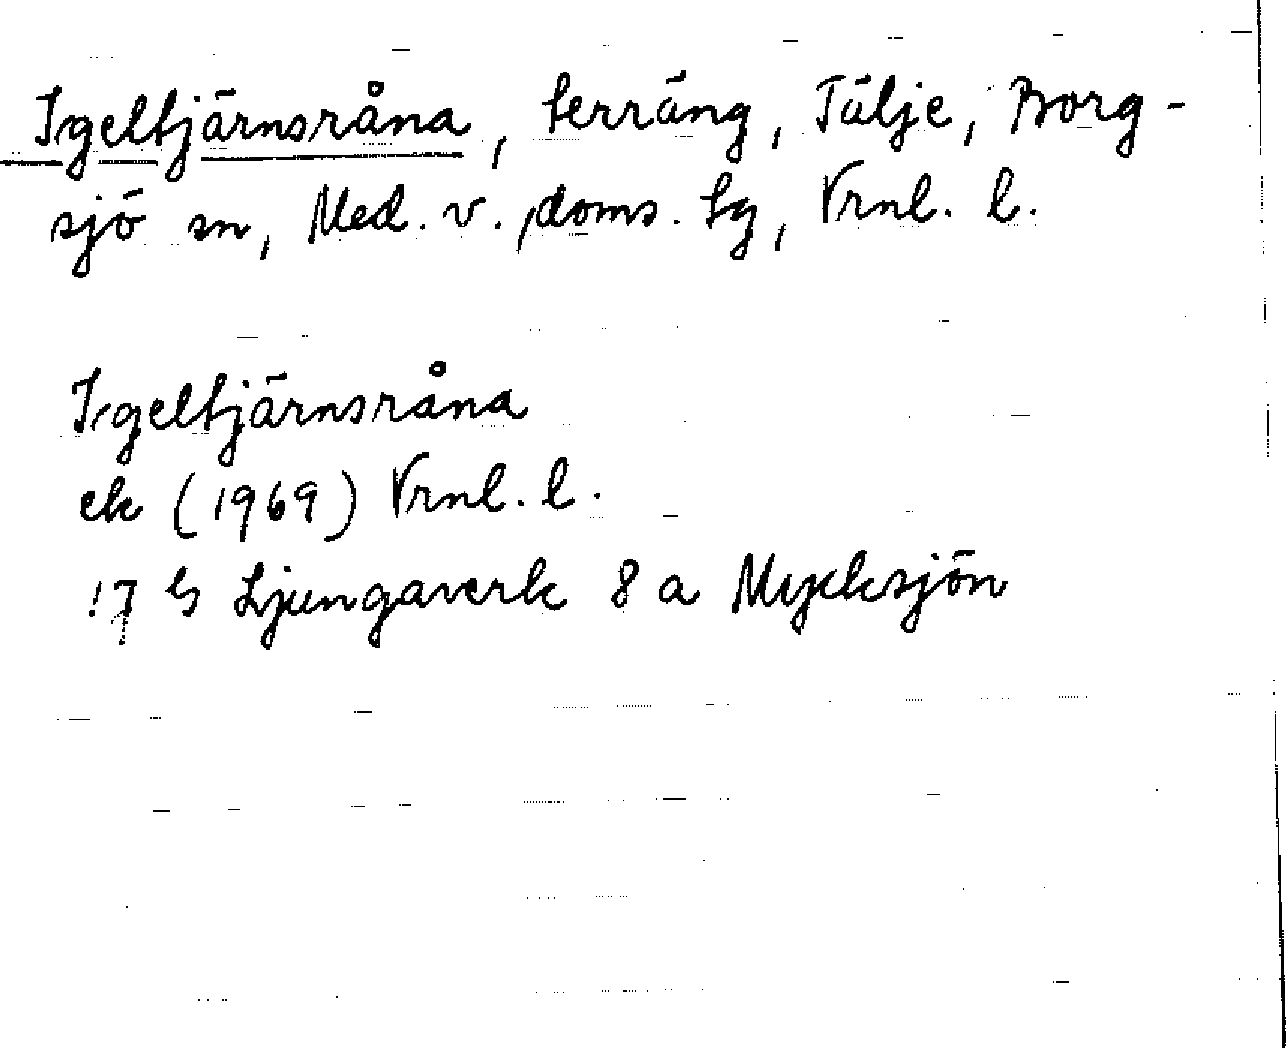 Igeltjärnsråna, terräng, Tälje, Borg-
sjö sn, Med. v. doms. tg, Vrnl. l.
Igeltjärnsråna
ek (1969) Vrnl. l.
17 G Ljungaverk 8 a Mycksjön